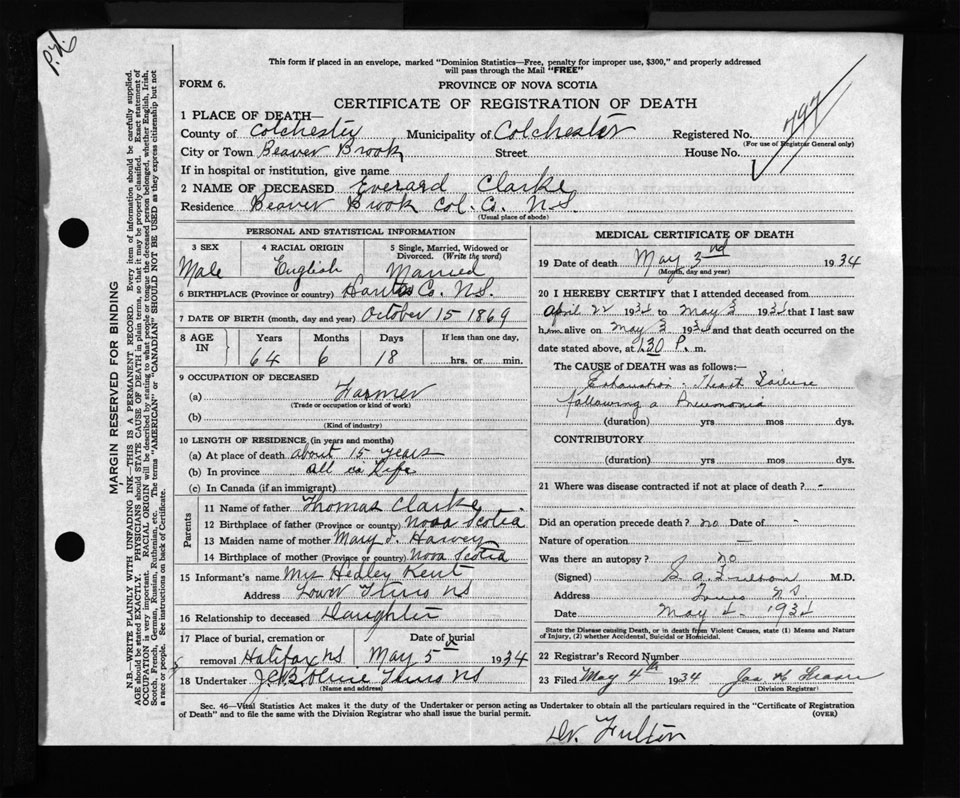 P.L.
This form if placed in an envelope, marked "Dominion Statistics—Free, penalty for improper use, $300," and properly addressed
will pass through the Mail "FREE"
FORM 6.
PROVINCE OF NOVA SCOTIA
CERTIFICATE OF REGISTRATION OF DEATH
1 PLACE OF DEATH—
County of Colchester Municipality of Colchester Registered No. 797
(For use of Registrar General only)
City or Town Beaver Brook Street House No.
If in hospital or institution, give name
2 NAME OF DECEASED Everard Clarke
Residence Beaver Brook Col. Co. N.S.
(Usual place of abode)
MARGIN RESERVED FOR BINDING
N.B.—WRITE PLAINLY WITH UNFADING INK—THIS IS A PERMANENT RECORD. Every item of information should be carefully supplied.
AGE should be stated EXACTLY. PHYSICIANS should STATE CAUSE OF DEATH in plain terms, so that it may be properly classified. Exact statement of
OCCUPATION is very important. RACIAL ORIGIN will be described by stating to what people or tongue the deceased person belonged, whether English, Irish,
Scotch, French, German, Russian, Ruthenian, etc. The terms "AMERICAN" or "CANADIAN" SHOULD NOT BE USED as they express citizenship but not
a race or people. See instructions on back of Certificate.
PERSONAL AND STATISTICAL INFORMATION
3 SEX 4 RACIAL ORIGIN 5 Single, Married, Widowed or
Divorced. (Write the word)
Male English Married
6 BIRTHPLACE (Province or country) Hants Co. N.S.
7 DATE OF BIRTH (month, day and year) October 15 1869
8 AGE IN Years Months Days If less than one day,
64 6 18 hrs. or min.
9 OCCUPATION OF DECEASED
(a) Farmer
(Trade or occupation or kind of work)
(b)
(Kind of industry)
10 LENGTH OF RESIDENCE (in years and months)
(a) At place of death about 15 years
(b) In province all his Life
(c) In Canada (if an immigrant)
Parents
11 Name of father Thomas Clarke
12 Birthplace of father (Province or country) Nova Scotia
13 Maiden name of mother Mary J. Harvey
14 Birthplace of mother (Province or country) Nova Scotia
15 Informant's name Mrs Hedley Kent
Address Lower Truro NS
16 Relationship to deceased Daughter
17 Place of burial, cremation or Date of burial
removal Halifax NS May 5th 1934
18 Undertaker Truro NS
(Name and address)
MEDICAL CERTIFICATE OF DEATH
19 Date of death May 3nd 1934
(Month, day and year)
20 I HEREBY CERTIFY that I attended deceased from
April 22 1934 to May 3 1934 that I last saw
him alive on May 3 1934 and that death occurred on
the date stated above, at 1.30 P. m.
The CAUSE OF DEATH was as follows:—
Exhaustion - Heart Failure
following a Pneumonia
(duration) yrs mos dys.
CONTRIBUTORY
(duration) yrs. mos. dys.
21 Where was disease contracted if not at place of death? -
Did an operation precede death? no Date of -
Nature of operation —
Was there an autopsy? no
(Signed) M.D.
Address Truro NS
Date May 4 1934
State the Disease causing Death, or in death from Violent Causes, state (1) Means and Nature
of Injury, (2) whether Accidental, Suicidal or Homicidal.
22 Registrar's Record Number
23 Filed May 4th 1934 Jas
(Division Registrar)
Sec. 46—Vital Statistics Act makes it the duty of the Undertaker or person acting as Undertaker to obtain all the particulars required in the "Certificate of Registration
of Death" and to file the same with the Division Registrar who shall issue the burial permit. (OVER)
Dr. Fulton